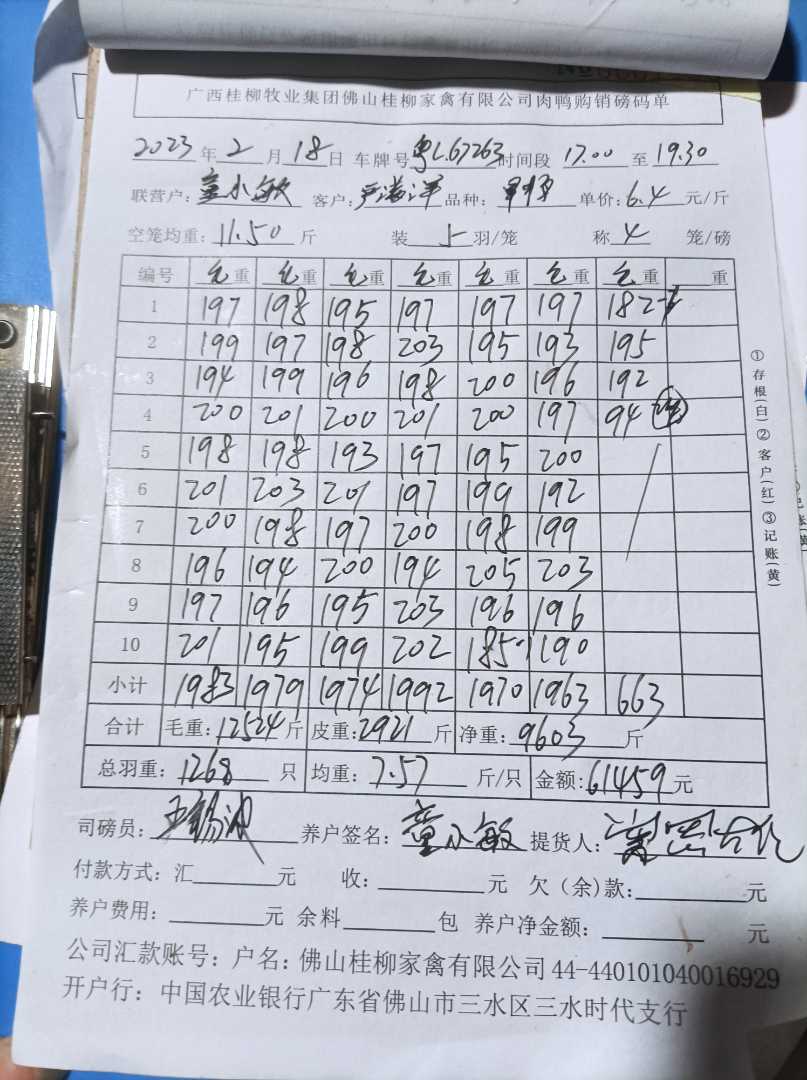 广西桂柳牧业集团佛山桂柳家禽有限公司肉鸭购销磅码单
2023年2月18日 车牌号粤L.67263时间段 17.00至19.30
联营户：童小敏 客户：严海洋 品种： 单价：6.4元/斤
空笼均重：11.50斤 装5羽/笼 称4笼/磅
编号 毛重 毛重 毛重 毛重 毛重 毛重 毛重 重
1 197 198 195 197 197 197 182
2 199 197 198 203 195 193 195
3 194 199 196 198 200 196 192
4 200 201 200 201 200 197 94
5 198 198 193 197 195 200
6 201 203 201 197 199 192
7 200 198 197 200 198 199
8 196 194 200 194 205 203
9 197 196 195 203 196 196
10 201 195 199 202 185 190
小计 1983 1979 1974 1992 1970 1963 663
合计 毛重：12524斤 皮重：2921斤 净重：9603斤
总羽重：1268只 均重：7.57斤/只 金额：61459元
司磅员： 养户签名：童小敏 提货人：
付款方式：汇元 收：元 欠（余）款：元
养户费用：元 余料包 养户净金额：元
公司汇款账号：户名：佛山桂柳家禽有限公司44-440101040016929
开户行：中国农业银行广东省佛山市三水区三水时代支行
①存根(白)②客户(红)③记账(黄)